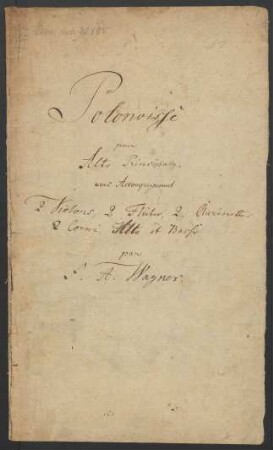 Polonoisse
pour
Alto Principale
avec Accompagnement
2 Violons, 2 Flûtes, 2 Clarinette
2 Corni Alto et Basso
par
F. A. Wagner.